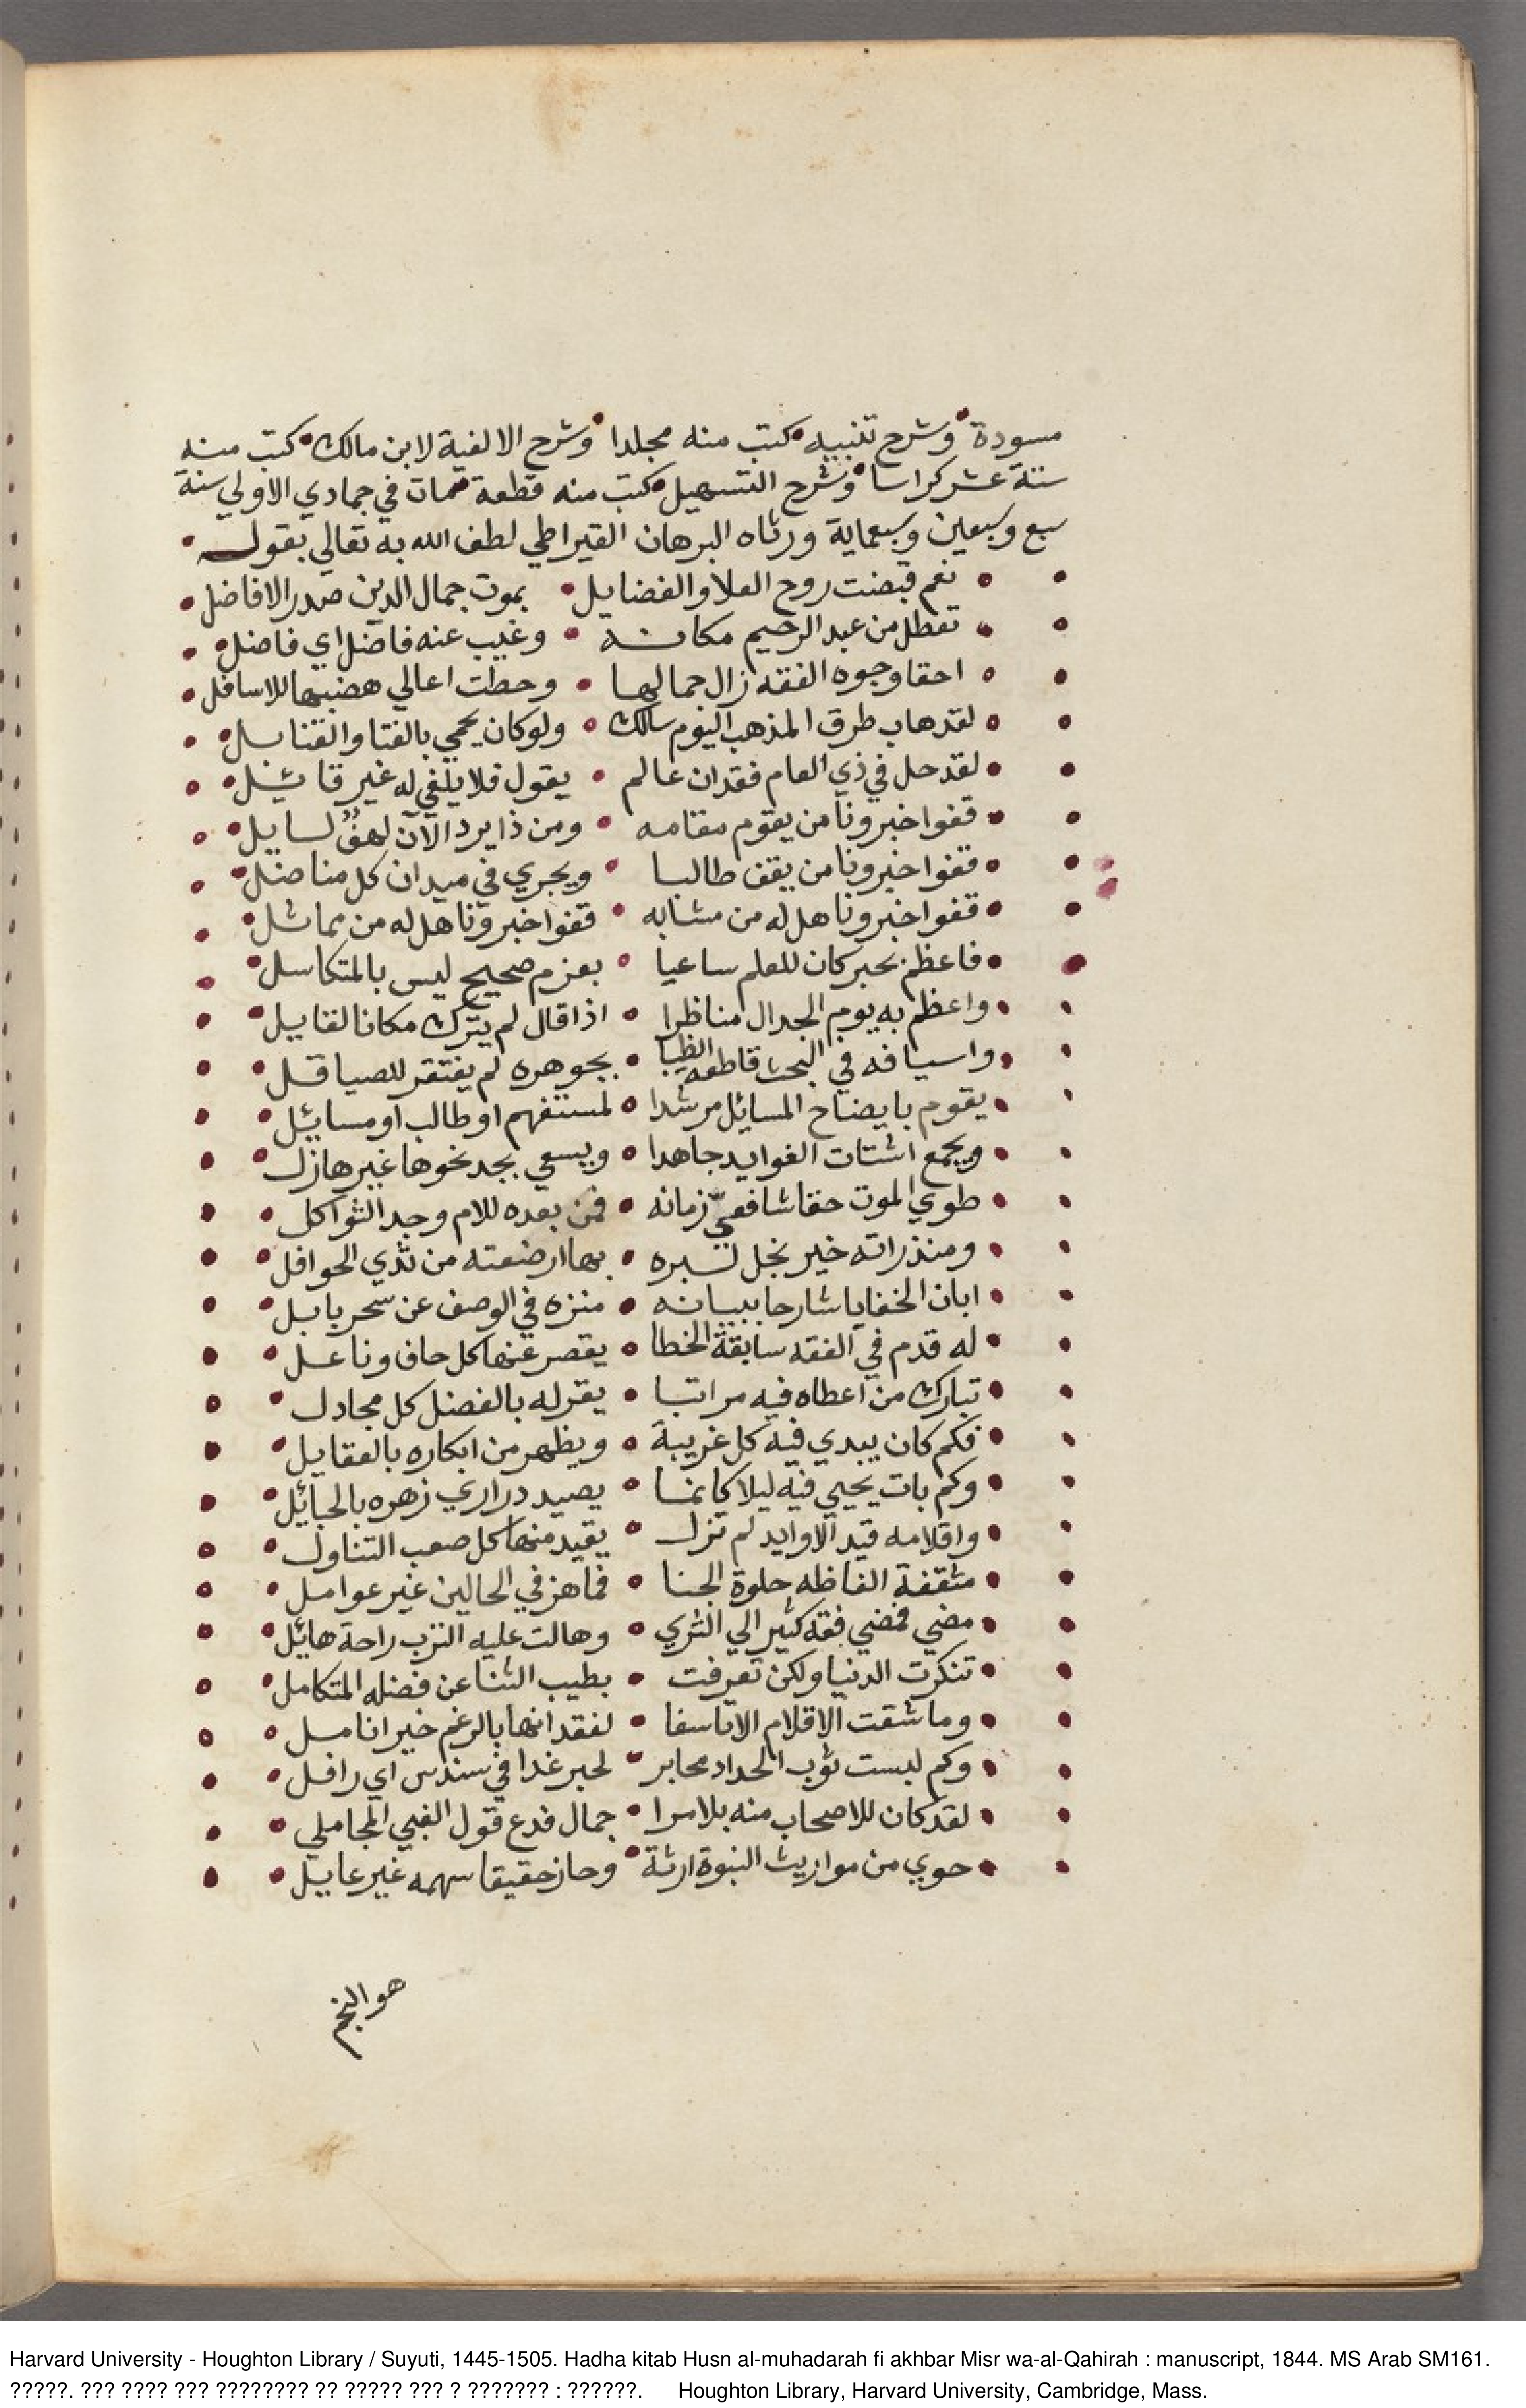 مسودة وشرح تنبيه كتب منه مجلدا وشرح الالفية لابن مالك كتب منه
ستة عشر كراسا وشرح التسهيل كتب منه قطعة مات في جمادي الاولي سنة
سبع وسبعين وسبعماية ورثاه البرهان القيراطي لطف الله به تعالي بقول
نعم قبضت روح العلا والفضايل بموت جمال الدين صدر الافاضل
تعطل من عبد الرحيم مكانه وغيب عنه فاضل اي فاضل
احقا وجوه الفقه زال جمالها وحطت اعالي هضبتها للاسافل
لقد هاب طرق المذهب اليوم سالك ولو كان يحمي بالفتا والقنابل
لقد حل في ذي العام فقدان عالم يقول فلا يلفي له غير قائل
قفوا خبرونا من يقوم مقامه ومن ذا يرد الآن لهف لسايل
قفوا خبرونا من يقف طالبا ويجري في ميدان كل مناضل
قفوا خبرونا هل له من مشابه قفوا خبرونا هل له من مماثل
فاعظم بحبر كان للعلم ساعيا بعزم صحيح ليس بالمتكاسل
واعظم به يوم الجدال مناظرا اذا قال لم يترك مكانا لقايل
واسيافه في البحث قاطعه الظبا بجوهره لم يفتقر للصياقل
يقوم بايضاح المسائل مرشدا لمستفهم او طالب او مسائل
ويجمع اشتات الفوايد جاهدا ويسعي بجد نحوها غير هازل
طوي الموت حقا شافعي زمانه فمن بعده للام وجد الثواكل
ومنذ راته خير نجل لسبره بها ارضعته من ثدي الحوافل
ابان الخفايا شارحا ببيانه منزه في الوصف عن سحر بابل
له قدم في الفقه سابقة الخطا يقصر عنها كل حاف وناعل
تبارك من اعطاه فيه مراتبا يقر له بالفضل كل مجادل
فكم كان يبدي فيه كل غريبة ويظهر من ابكاره بالعقايل
وكم بات يحيي فيه ليلا كانما يصيد دراري زهره بالحبائل
واقلامه قيد الاوابد لم تزل يقيد منها كل صعب التناول
مثقفة الفاظه حلوة الجنا فما هز في الحالين غير عوامل
مضي فمضي فقه كثير الي الثري وهالت عليه الترب راحة هائل
تنكرت الدنيا ولكن تعرفت بطيب الثنا عن فضله المتكامل
وما شقت الاقلام الا تاسفا لفقدانها بالرغم خير انامل
وكم لبست ثوب الحداد محابر لحبر غدا في سندس اي رافل
لقد كان للاصحاب منه بلا مرا جمال فدع قول الغبي المجاملي
حوي من مواريث النبوة ارثة وحاز حقيقا سهمه غير عايل
هو النجم
Harvard University - Houghton Library / Suyuti, 1445-1505. Hadha kitab Husn al-muhadarah fi akhbar Misr wa-al-Qahirah : manuscript, 1844. MS Arab SM161.
?????. ??? ???? ??? ???????? ?? ????? ??? ? ??????? : ??????. Houghton Library, Harvard University, Cambridge, Mass.